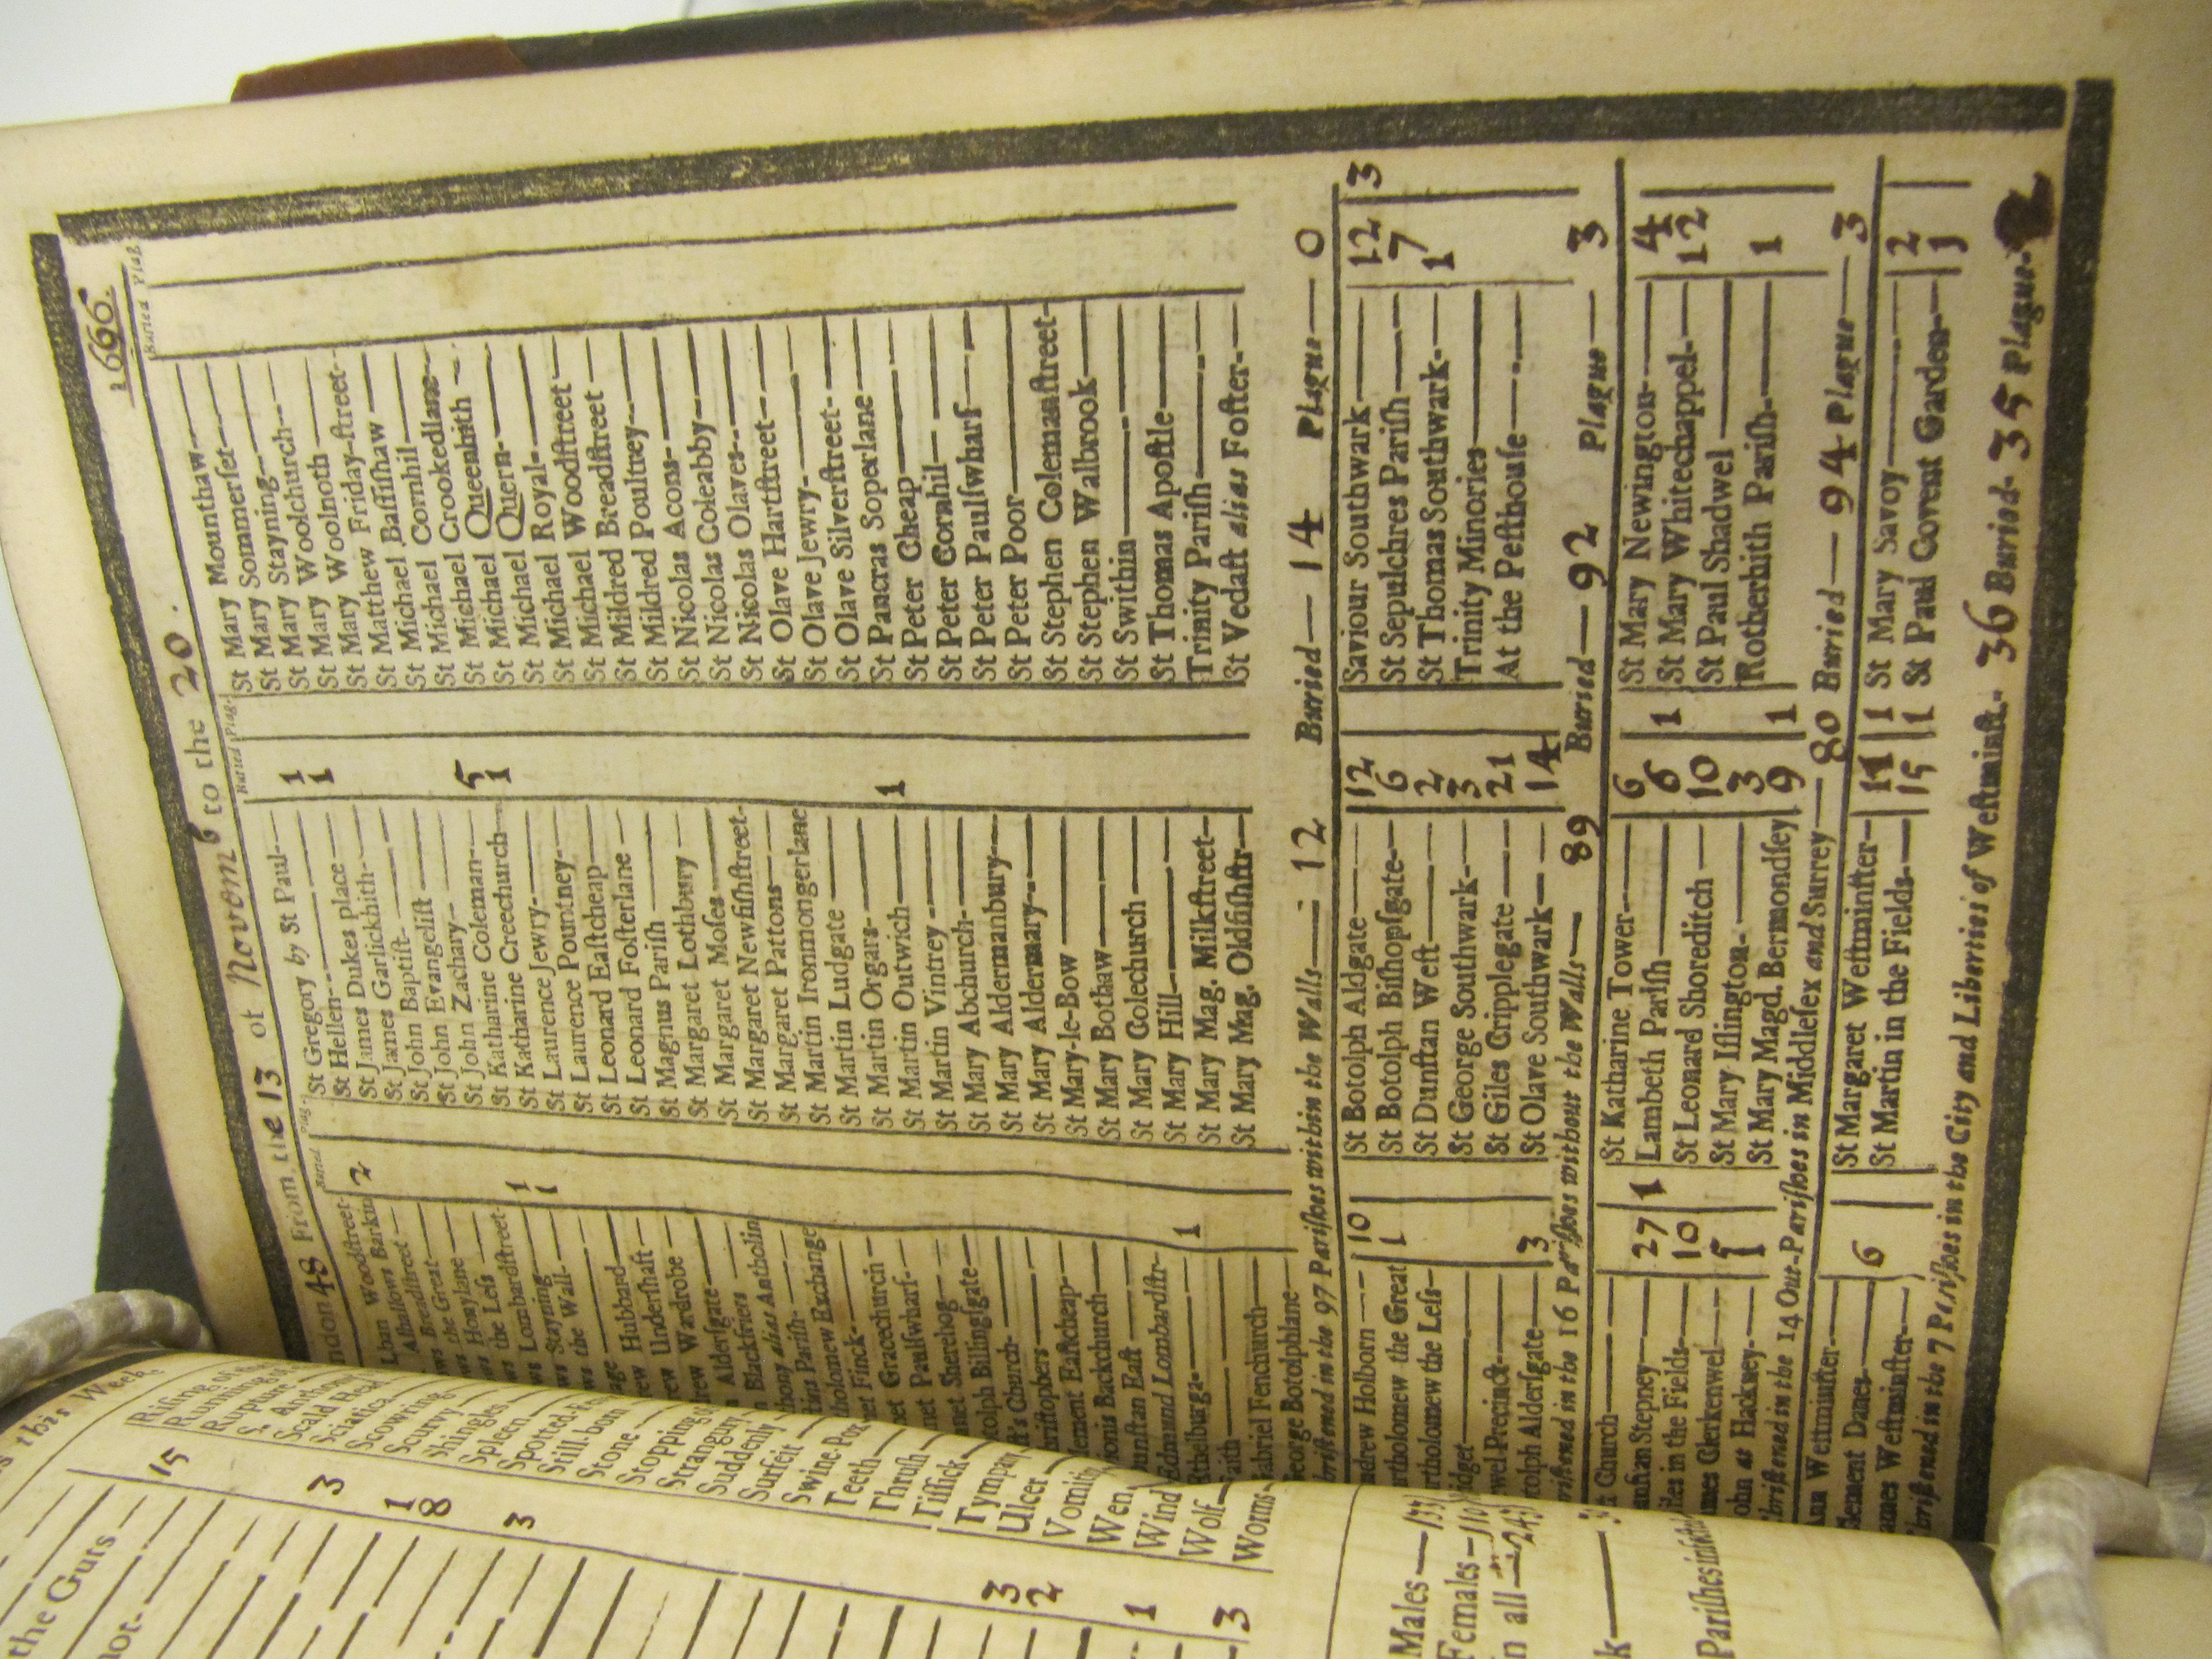 ndon 48 From the 13 of Novemb to the 20. 1666.
Buried Plag.
Buried Plag.
Buried Plag
Woodstreet-
lhallows Barkin 2
Breadstreet
the Great
Honylane
the Less
Lombardstreet
Stayning 1
the Wall 1
Hubbard
Undershaft
Wardrobe
Aldersgate
Blackfriers
alias Antholin
tins Parish
holomew Exchange
et Finck
et Gracechurch
net Paulswharf
net Sherehog
tolph Billingsgate
's Church
ristophers
lement Eastcheap
ionis Backchurch
unstan East
Edmund Lombardstr-
thelburga 1
aith
abriel Fenchurch
George Botolphlane
St Gregory by St Paul 1
St Hellen 1
St James Dukes place
St James Garlickhith
St John Baptist
St John Evangelist
St John Zachary
St Katharine Coleman 5
St Katharine Creechurch 1
St Laurence Jewry
St Laurence Pountney
St Leonard Eastcheap
St Leonard Fosterlane
St Magnus Parish
St Margaret Lothbury
St Margaret Moses
St Margaret Newfishstreet
St Margaret Pattons
St Martin Ironmongerlane
St Martin Ludgate
St Martin Orgars
St Martin Outwich 1
St Martin Vintrey
St Mary Abchurch
St Mary Aldermanbury
St Mary Aldermary
St Mary-le-Bow
St Mary Bothaw
St Mary Colechurch
St Mary Hill
St Mary Mag. Milkstreet
St Mary Mag. Oldfishstr
St Mary Mounthaw
St Mary Sommerset
St Mary Stayning
St Mary Woolchurch
St Mary Woolnoth
St Mary Friday-street
St Matthew Friday-street
St Michael Bassishaw
St Michael Cornhil
St Michael Crookedlane
St Michael Queenhith
St Michael Quern
St Michael Royal
St Michael Woodstreet
St Mildred Breadstreet
St Mildred Poultrey
St Nicolas Acons
St Nicolas Coleabby
St Nicolas Olaves
St Olave Hartstreet
St Olave Jewry
St Olave Silverstreet
St Pancras Soperlane
St Peter Cheap
St Peter Cornhil
St Peter Paulswharf
St Peter Poor
St Stephen Colemanstreet
St Stephen Walbrook
St Swithin
St Thomas Apostle
Trinity Parish
St Vedast alias Foster
bristened in the 97 Parishes within the Walls 12 Buried 14 Plague 0
ndrew Holborn 10
artholomew the Great 1
rtholomew the Less
idget
wel Precinct
tolph Aldersgate 3
St Botolph Aldgate 12
St Botolph Bishopsgate 6
St Dunstan West 2
St George Southwark 3
St Giles Cripplegate 21
St Olave Southwark 14
Saviour Southwark 12 3
St Sepulchres Parish 7
St Thomas Southwark 1
Trinity Minories
At the Pesthouse
bristened in the 16 Parishes without the Walls 89 Buried 92 Plague 3
t Church
unstan Stepney 27 1
iles in the Fields 10
mes Clerkenwel 5
ohn at Hackney 1
St Katharine Tower 6
Lambeth Parish 6 1
St Leonard Shoreditch 10
St Mary Islington 3
St Mary Magd. Bermondsey 9 1
St Mary Newington 4
St Mary Whitechappel 12
St Paul Shadwel
Rotherhith Parish 1
bristened in the 14 Out-Parishes in Middlesex and Surrey 80 Buried 94 Plague 3
nn Westminster
lement Danes 6
ames Westminster
St Margaret Westminster 11 1
St Martin in the Fields 15 1
St Mary Savoy 2
St Paul Covent Garden 1
bristened in the 7 Parishes in the City and Liberties of Westminst. 36 Buried 35 Plague 2
this Week
the Guts 15
3
1
8
3
3
2
1
3
Rising of
Running of
Rupture
Scald Hea
Sciatica
Scowring
Scurvy
Shingles
Spleen
Spotted-
Still-born
Stone
Stopping
Strangury
Suddenly
Surfeit
Swine-Pox
Teeth
Thrush
Tissick
Tympany
Ulcer
Vomiti
Wen
Wind
Wolf
Worms
Males 133
Females 110
n all 243
Parishes